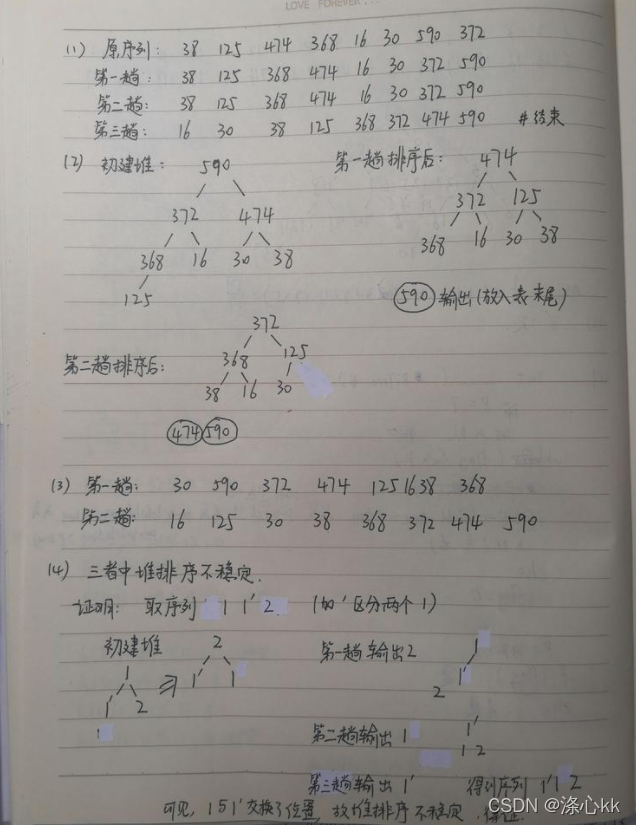 LOVE FOREVER...
(1) 原序列: 38 125 474 368 16 30 590 372
第一趟: 38 125 368 474 16 30 372 590
第二趟: 38 125 368 474 16 30 372 590
第三趟: 16 30 38 125 368 372 474 590 #结束
(2) 初建堆: 590
372 474
368 16 30 38
125
第一趟排序后: 474
372 125
368 16 30 38
590 输出(放入表末尾)
第二趟排序后: 372
368 125
38 16 30
474 590
(3) 第一趟: 30 590 372 474 125 16 38 368
第二趟: 16 125 30 38 368 372 474 590
(4) 三者中堆排序不稳定.
证明: 取序列 1 1' 2 (加'区分两个1)
初建堆
1
1' 2
⇒
2
1' 1
第一趟输出2
1
1'
2
第二趟输出1
1'
1 2
第三趟输出1' 得到序列 1' 1 2
可见, 1与1'交换了位置, 故堆排序不稳定
CSDN @涤心kk